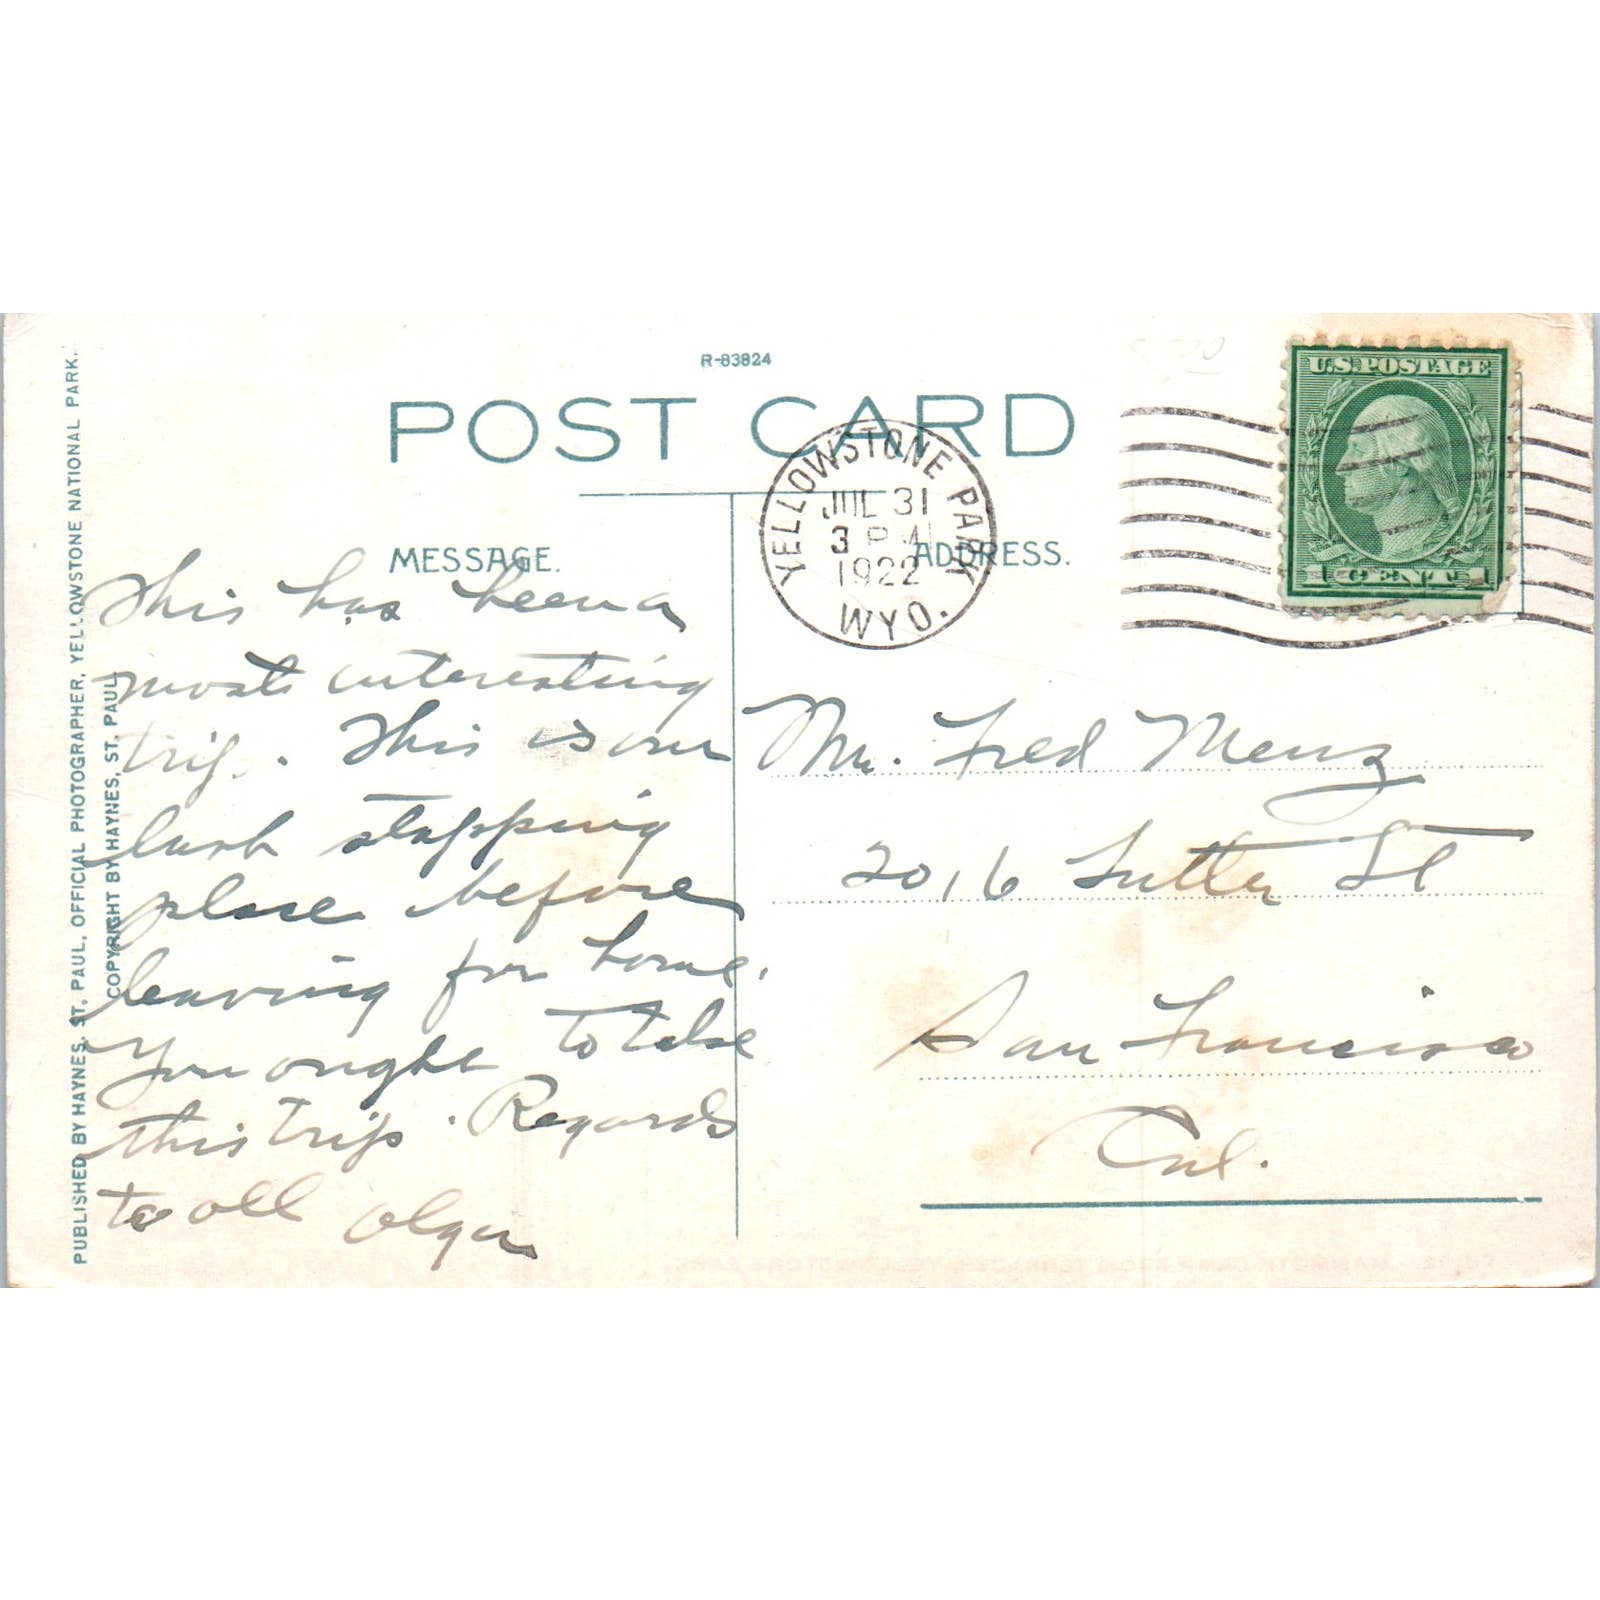 R-83824
POST CARD
U.S. POSTAGE
1 CENT 1
YELLOWSTONE PARK
JUL 31
3 PM
1922
WYO.
MESSAGE.
This has been a
most interesting
trip. This is our
last stopping
place before
leaving for home.
You ought to take
this trip. Regards
to all Olga
ADDRESS.
Mr. Fred Menz
2016 Sutter St
San Francisco
Cal.
PUBLISHED BY HAYNES, ST. PAUL, OFFICIAL PHOTOGRAPHER, YELLOWSTONE NATIONAL PARK.
COPYRIGHT BY HAYNES, ST. PAUL